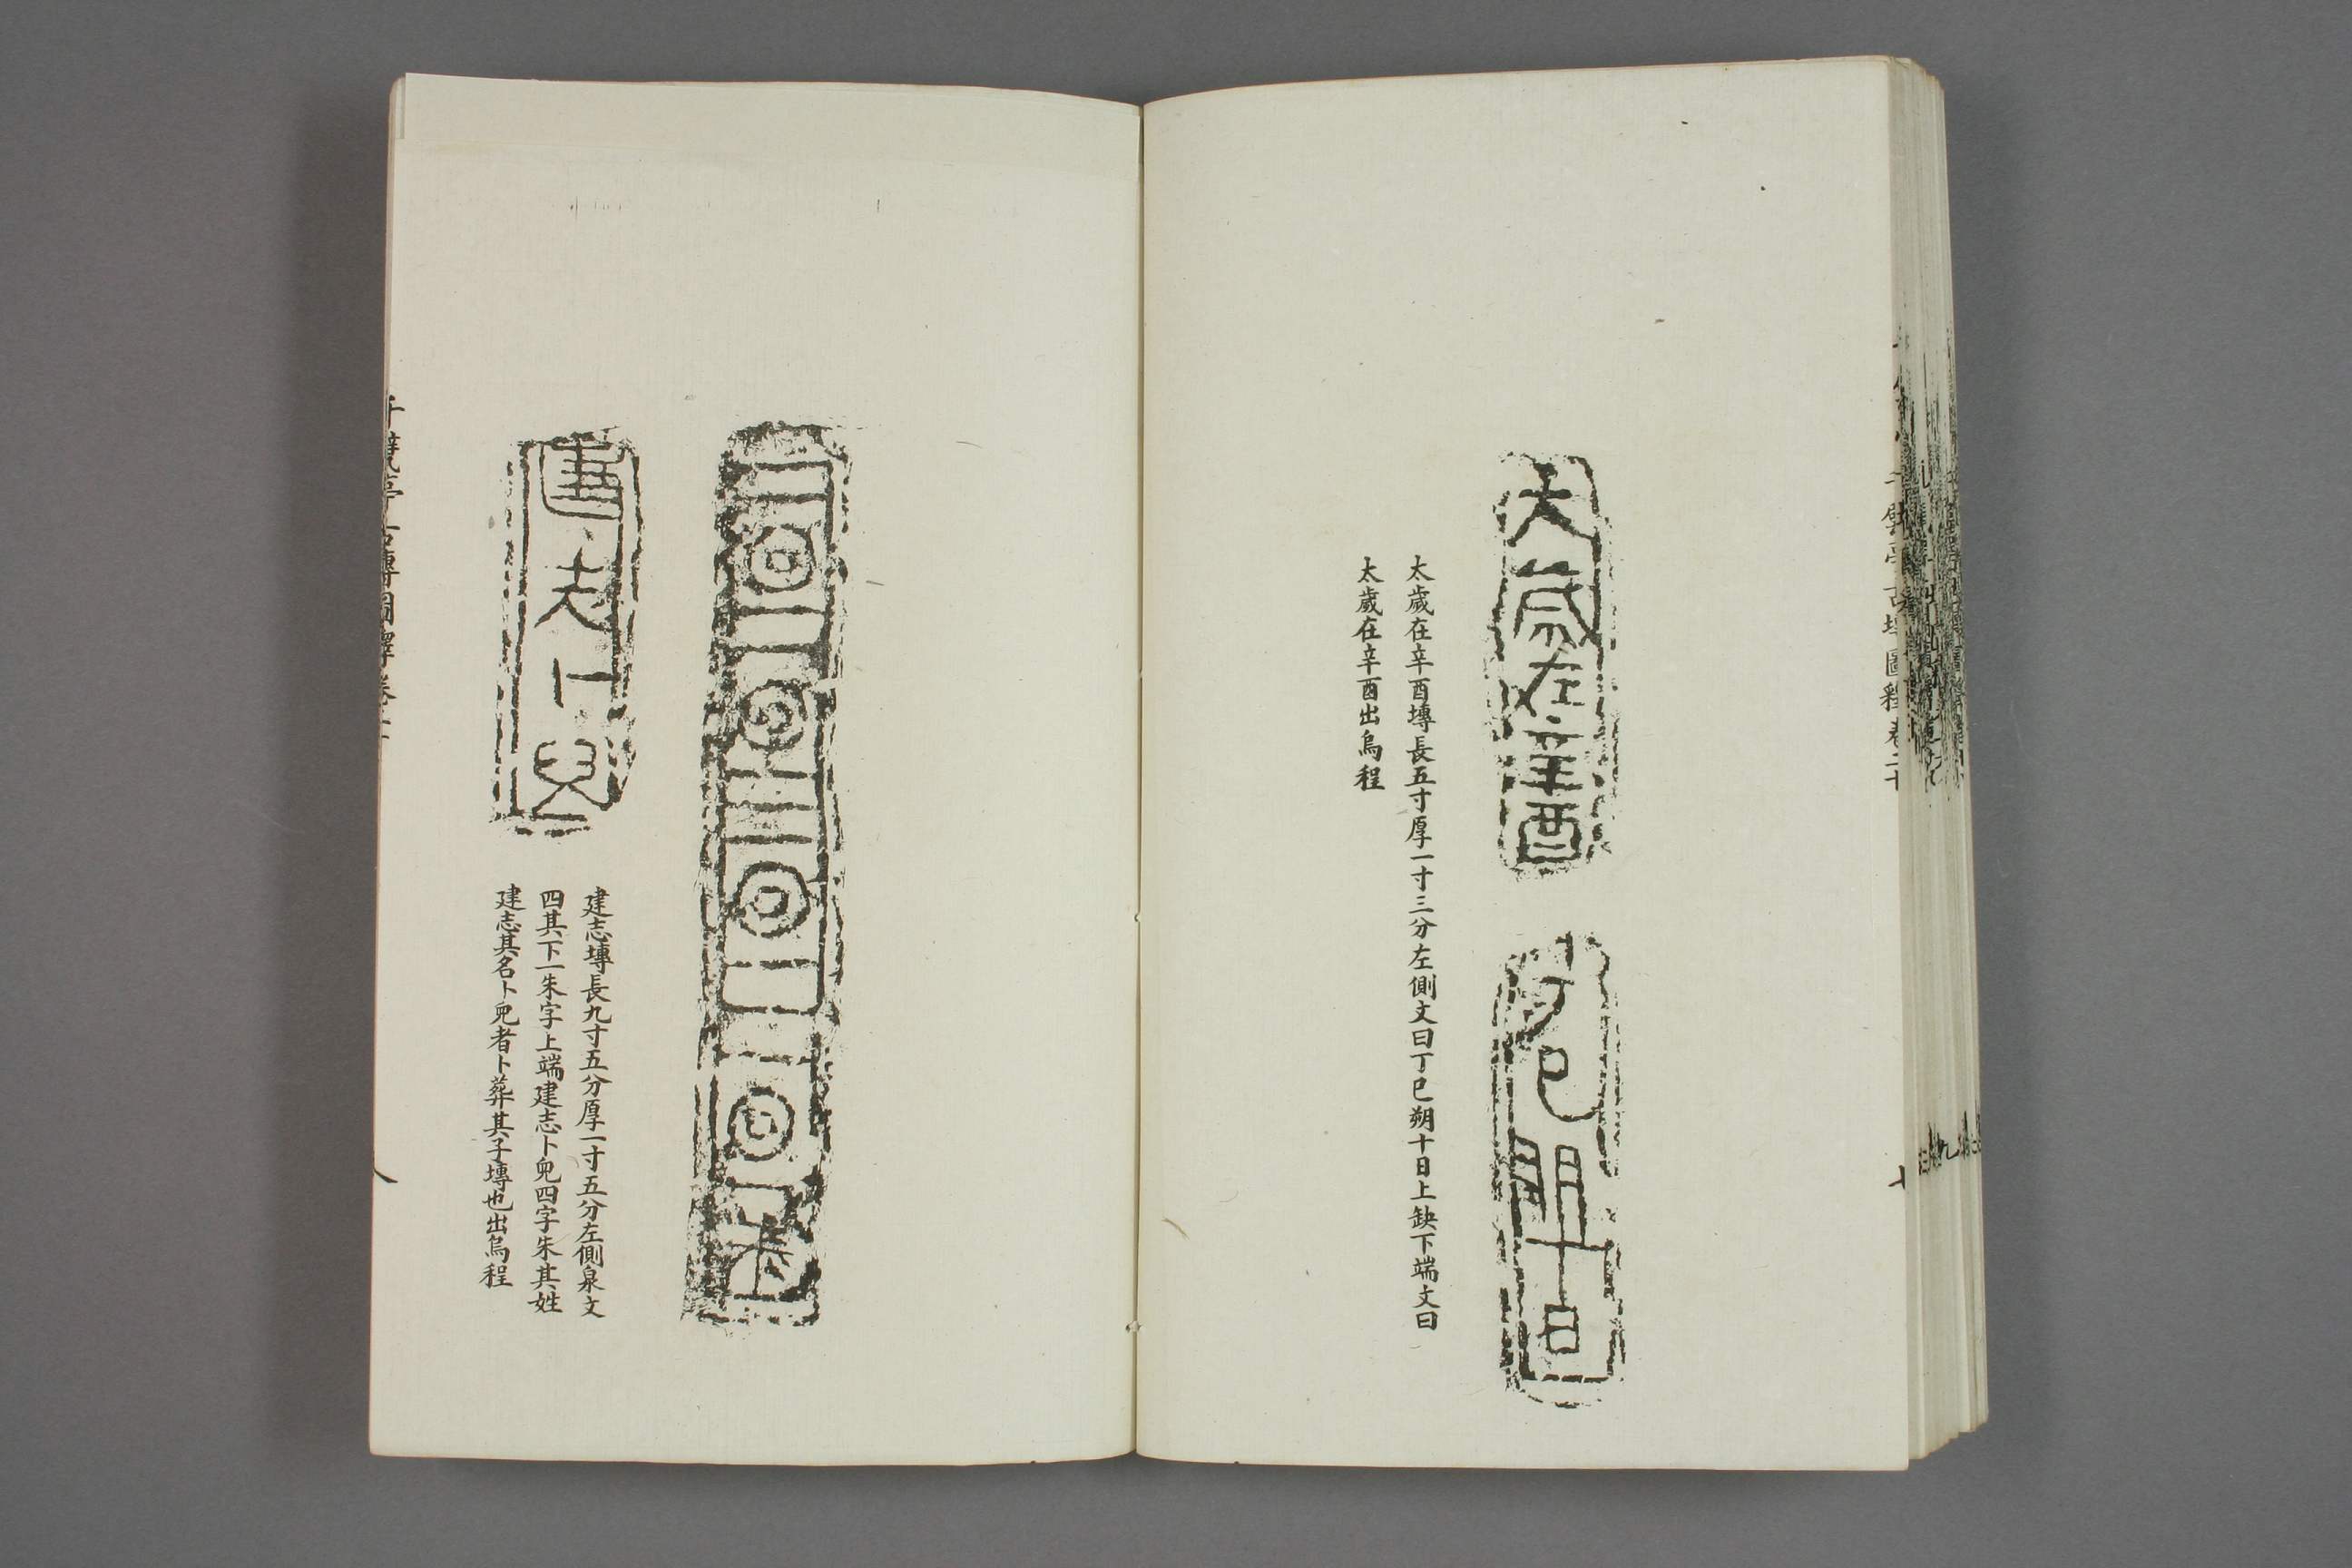 太歲在辛酉
丁巳朔十日
太歲在辛酉塼長五寸厚一寸三分左側文曰丁巳朔十日上缺下端文曰
太歲在辛酉出烏程
朱
建志卜兒
建志塼長九寸五分厚一寸五分左側泉文
四其下一朱字上端建志卜兒四字朱其姓
建志其名卜兒者卜葬其子塼也出烏程
千甓亭古塼圖釋卷二十